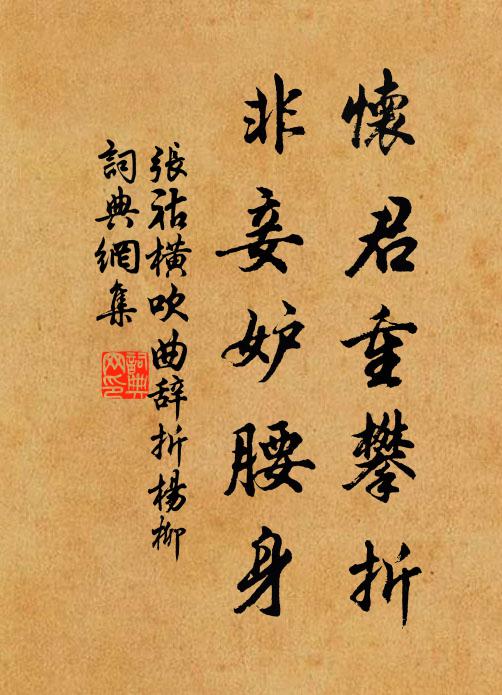 懷君重攀折
非妾妒腰身
張祜橫吹曲辞折楊柳
詞典網集
詞典
网印